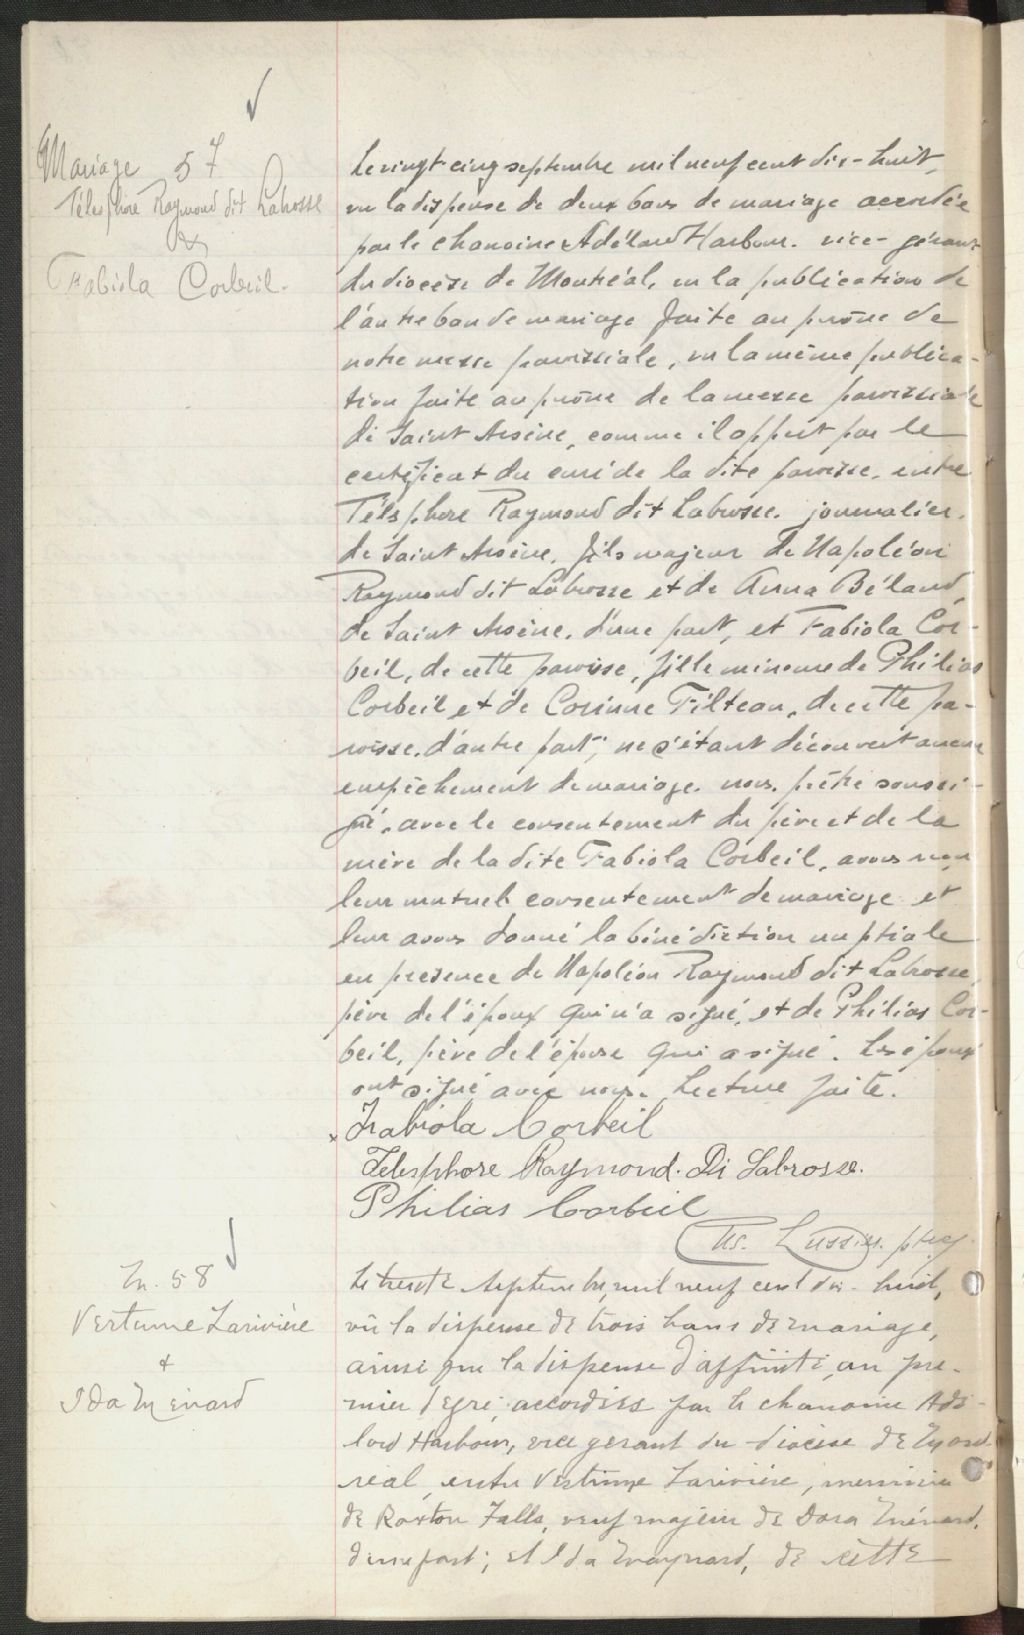 Mariage 57
Télesphore Raymond dit Labrosse
&
Fabiola Corbeil.
Le vingt cinq septembre mil neuf cent dix-huit,
vu la dispense de deux bans de mariage accordée
par le chanoine Adélard Harbour. vice-gérant
du diocèse de Montréal, vu la publication de
l'autre ban de mariage faite au prône de
notre messe paroissiale, vu la même publica-
tion faite au prône de la messe paroissiale
de Saint Arsène, comme il appert par le
certificat du curé de la dite paroisse, entre
Télesphore Raymond dit Labrosse. journalier.
de Saint Arsène. fils majeur de Napoléon
Raymond dit Labrosse et de Anna Béland,
de Saint Arsène. d'une part, et Fabiola Cor-
beil, de cette paroisse, fille mineure de Philias
Corbeil et de Corinne Filteau, de cette pa-
roisse. d'autre part; ne s'étant découvert aucun
empêchement de mariage. nous. prêtre soussi-
gné, avec le consentement du père et de la
mère de la dite Fabiola Corbeil, avons reçu
leur mutuel consentement de mariage et
leur avons donné la bénédiction nuptiale
en présence de Napoléon Raymond dit Labrosse,
père de l'époux qui n'a signé, et de Philias Cor-
beil, père de l'épouse qui a signé. Les époux
ont signé avec nous. Lecture faite.
x Fabiola Corbeil
Telesphore Raymond. Di Labrosse.
Philias Corbeil
Ths. Lussier. ptre
M. 58
Vertume Larivière
&
Ida Ménard
Le trente septembre, mil neuf cent dix-huit,
vû la dispense de trois bans de mariage,
ainsi que la dispense d'affinité, au pre-
mier degré, accordées par le chanoine Adé-
lard Harbour, vice gérant du diocèse de Mont
réal, entre Vertume Larivière,
de Roxton Falls, veuf majeur de Dora Ménard,
d'une part; et Ida Maynard, de cette